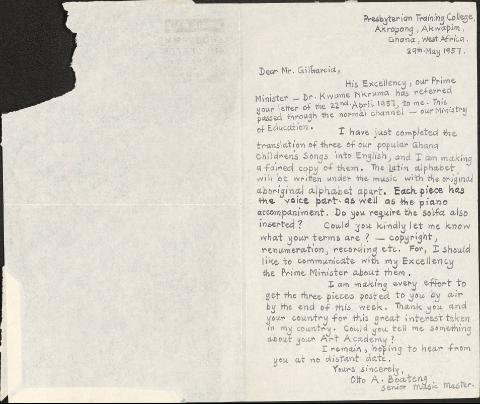 Presbyterian Training College,
Akropong, Akwapim,
Ghana, West Africa.
29th May 1957.
Dear Mr. GilGarcia,
His Excellency, our Prime
Minister – Dr. Kwame Nkruma has referred
your letter of the 22nd April 1957, to me. This
passed through the normal channel – our Ministry
of Education.
I have just completed the
translation of three of our popular Ghana
Childrens Songs into English, and I am making
a faired copy of them. The Latin alphabet
will be written under the music with the original
aboriginal alphabet apart. Each piece has
the voice part as well as the piano
accompaniment. Do you require the solfa also
inserted? Could you kindly let me know
what your terms are? – copyright,
renumeration, recording etc. For, I should
like to communicate with my Excellency
the Prime Minister about them.
I am making every effort to
get the three pieces posted to you by air
by the end of this week. Thank you and
your country for this great interest taken
in my country. Could you tell me something
about your Art Academy?
I remain, hoping to hear from
you at no distant date.
Yours sincerely,
Otto A. Boateng
Senior Music Master.